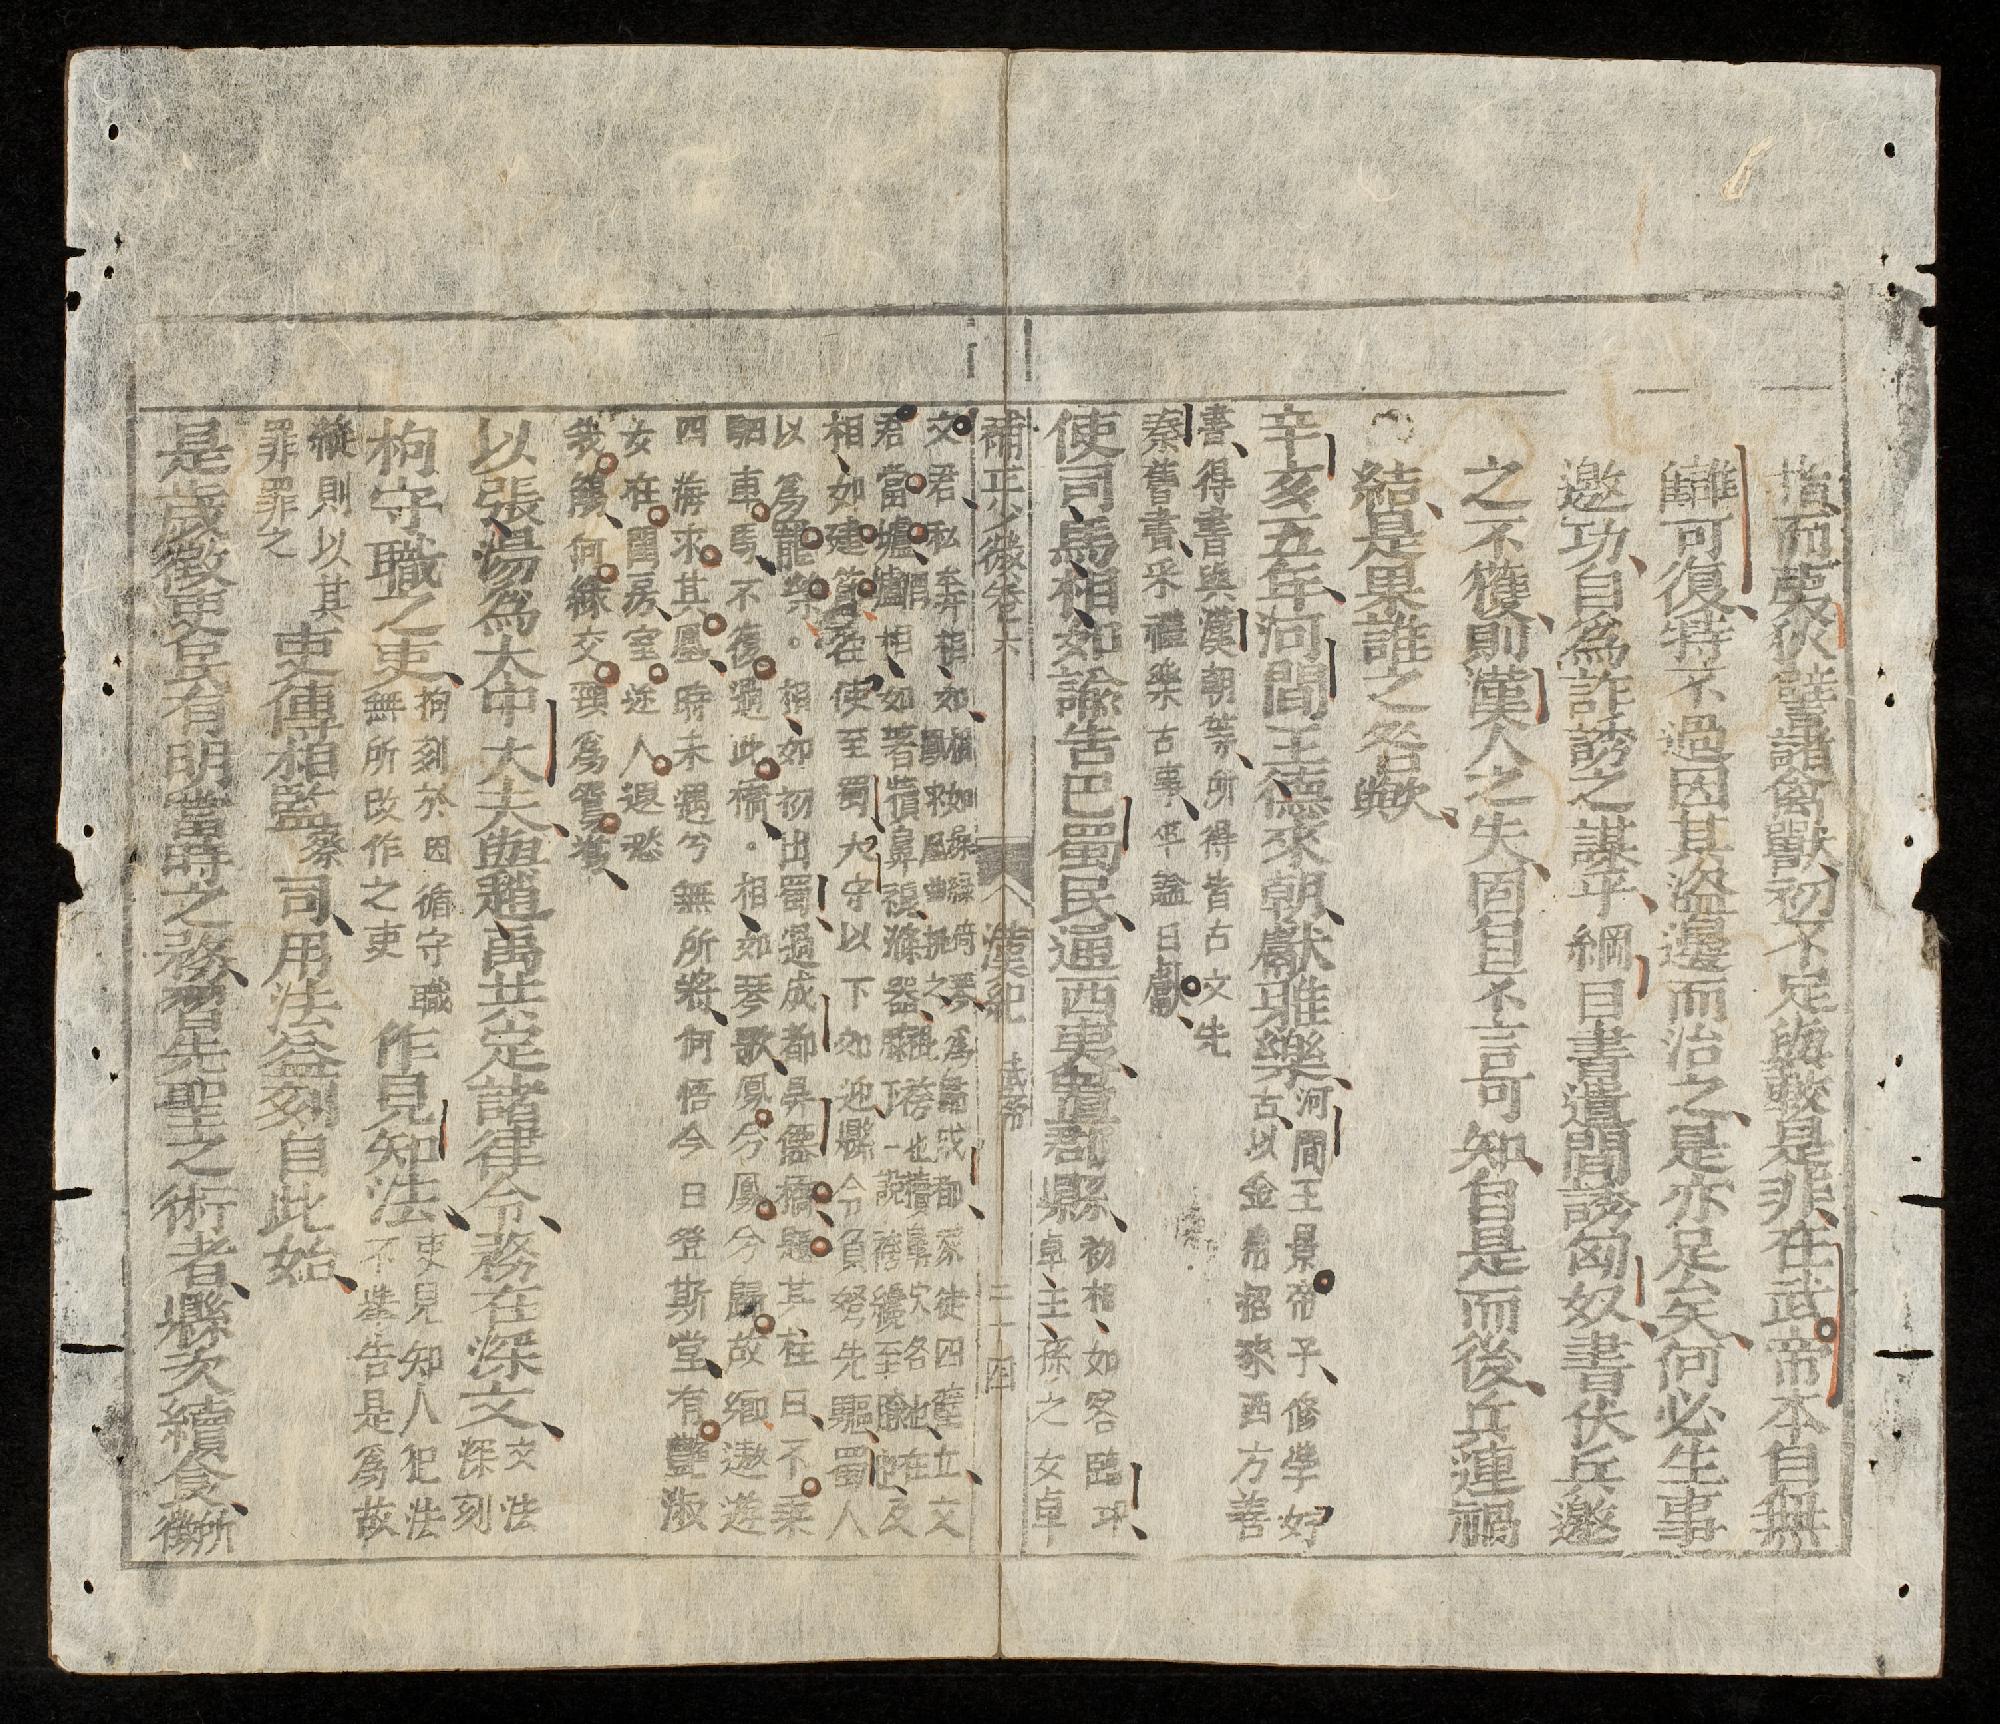 指而夷狄譬諸禽獸初不足與較是非在武帝本自無
讎可復特不過因其盗邊而治之是亦足矣何必生事
邀功自為詐誘之謀乎綱目書遣間誘匈奴書伏兵邀
之不獲則漢人之失固自不言可知自是而後兵連禍
結是果誰之咎歟
辛亥五年河間王德來朝獻雅樂河間王景帝子修學好
古以金帛招來四方善
書得書與漢朝等所得皆古文先
秦舊書采禮樂古事卒謚曰獻
使司馬相如諭告巴蜀民通西夷置郡縣初相如客臨卭
卓王孫之女卓
補正少微卷六 漢紀 武帝 二十四
文君私奔相如
君當壚
相如建節往使至蜀太守以下郊迎縣令負弩先驅蜀人
以為寵榮相如初出蜀過成都昇僊橋題其柱曰不乗
駟車馬不復過此橋相如琴歌鳳兮鳳兮歸故鄉遨遊
四海求其凰時未遇兮無所將何悟今日登斯堂有豔淑
女在閨房室迩人遐愁
我腸何緣交頸為鴛鴦
以張湯為太中大夫與趙禹共定諸律令務在深文文法
深刻
拘守職之吏拘刻於因循守職
無所改作之吏作見知法吏見知人犯法
不舉告是為故
縱則以其
罪罪之吏傳相監察司用法益刻自此始
是歲徵吏民有明當時之務習先聖之術者縣次續食所
徵